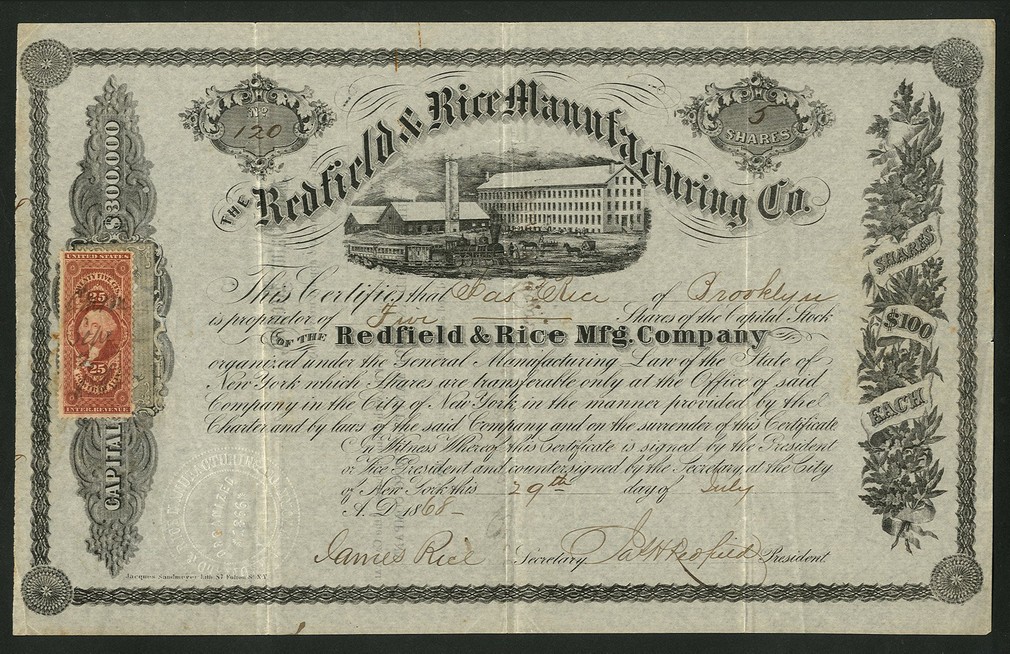 No
120
5
SHARES
THE Redfield & Rice Manufacturing Co.
CAPITAL $300,000
UNITED STATES
25
25
INTER. REVENUE
SHARES
$100
EACH
This Certifies that Jas Rice of Brooklyn
is proprietor of Five Shares of the Capital Stock
OF THE Redfield & Rice Mfg. Company
organized under the General Manufacturing Law of the State of
New York which Shares are transferable only at the Office of said
Company in the City of New York, in the manner provided by the
Charter and by laws of the said Company and on the surrender of this Certificate
In Witness Whereof this Certificate is signed by the President
or Vice President and countersigned by the Secretary at the City
of New York this 29th day of July
A.D. 1868
James Rice Secretary. Redfield President.
Jacques Sandmeyer Lith. 87 Fulton St. N.Y.